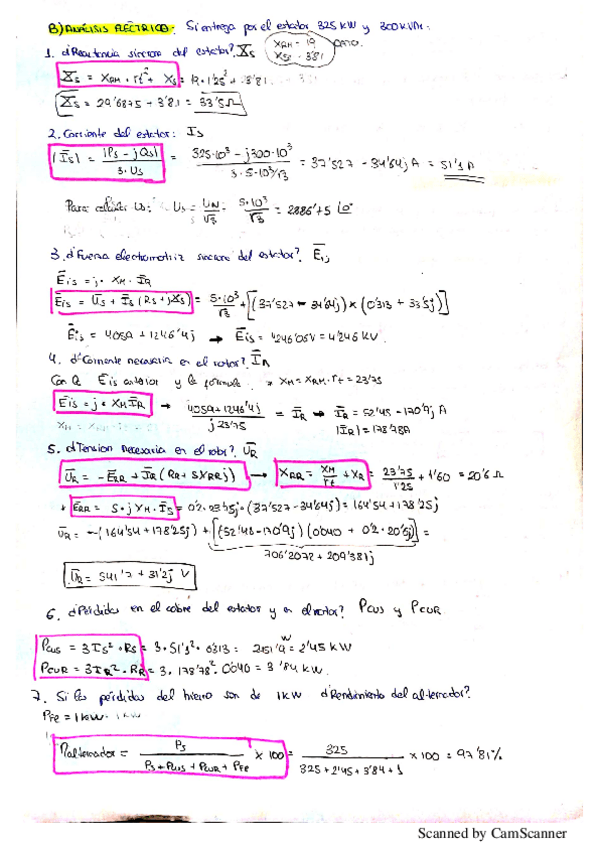 B) ANÁLISIS ELÉCTRICO. Si entrega por el estator 325 kW y 300 kVAr.
1. ¿Reactancia síncrona del estator? X̄s
XRM = 19
Xs = 3'81
X̄s = XRM · rt² + Xs = 19 · 1'25² + 3'81
X̄s = 29'6875 + 3'81 = 33'5 Ω
2. Corriente del estator: Is
|Īs| = |Ps - jQs| / 3·Us = 325·10³ - j300·10³ / 3·5·10³/√3 = 37'527 - 34'64j A = 51'1 A
Para calcular Us: Us = UN/√3 = 5·10³/√3 = 2886'75 |0°
3. ¿Fuerza electromotriz síncrona del estator? Ē
Ēis = j · XM · ĪR
Ēis = Ūs + Īs (Rs + jXs) = 5·10³/√3 + [(37'527 - 34'64j) × (0'313 + 33'5j)]
Ēis = 4059 + 1246'4j → Ēis = 4246'05V = 4'246 kV
4. ¿Corriente necesaria en el rotor? ĪR
Con Ēis anterior y la fórmula * XM = XRM · rt = 23'75
Ēis = j · XM ĪR → 4059 + 1246'4j / j 23'75 = ĪR → ĪR = 52'45 - 170'9j A
|ĪR| = 178'78A
5. ¿Tensión necesaria en el rotor? ŪR
ŪR = -ĒRR + ĪR (RR + SXRRj) → XRR = XM/rt + XR = 23'75/1'25 + 1'60 = 20'6 Ω
* ĒRR = S · j XM · Īs = 0'2 · 23'75j · (37'527 - 34'64j) = 164'54 + 178'25j
ŪR = -(164'54 + 178'25j) + [(52'48 - 170'9j) (0'040 + 0'2 · 20'5j)] =
706'2072 + 209'381j
ŪR = 541'7 + 31'2j V
6. ¿Pérdidas en el cobre del estator y en el rotor? PCUS y PCUR
PCUS = 3Is² · Rs = 3 · 51'1² · 0'313 = 2451'9 W = 2'45 kW
PCUR = 3IR² · RR = 3 · 178'78² · 0'040 = 3'84 kW
7. Si las pérdidas del hierro son de 1kW ¿Rendimiento del alternador?
PFe = 1 kW
ηalternador = Ps / Ps + PCUS + PCUR + PFe × 100 = 325 / 325 + 2'45 + 3'84 + 1 × 100 = 97'81%
Scanned by CamScanner